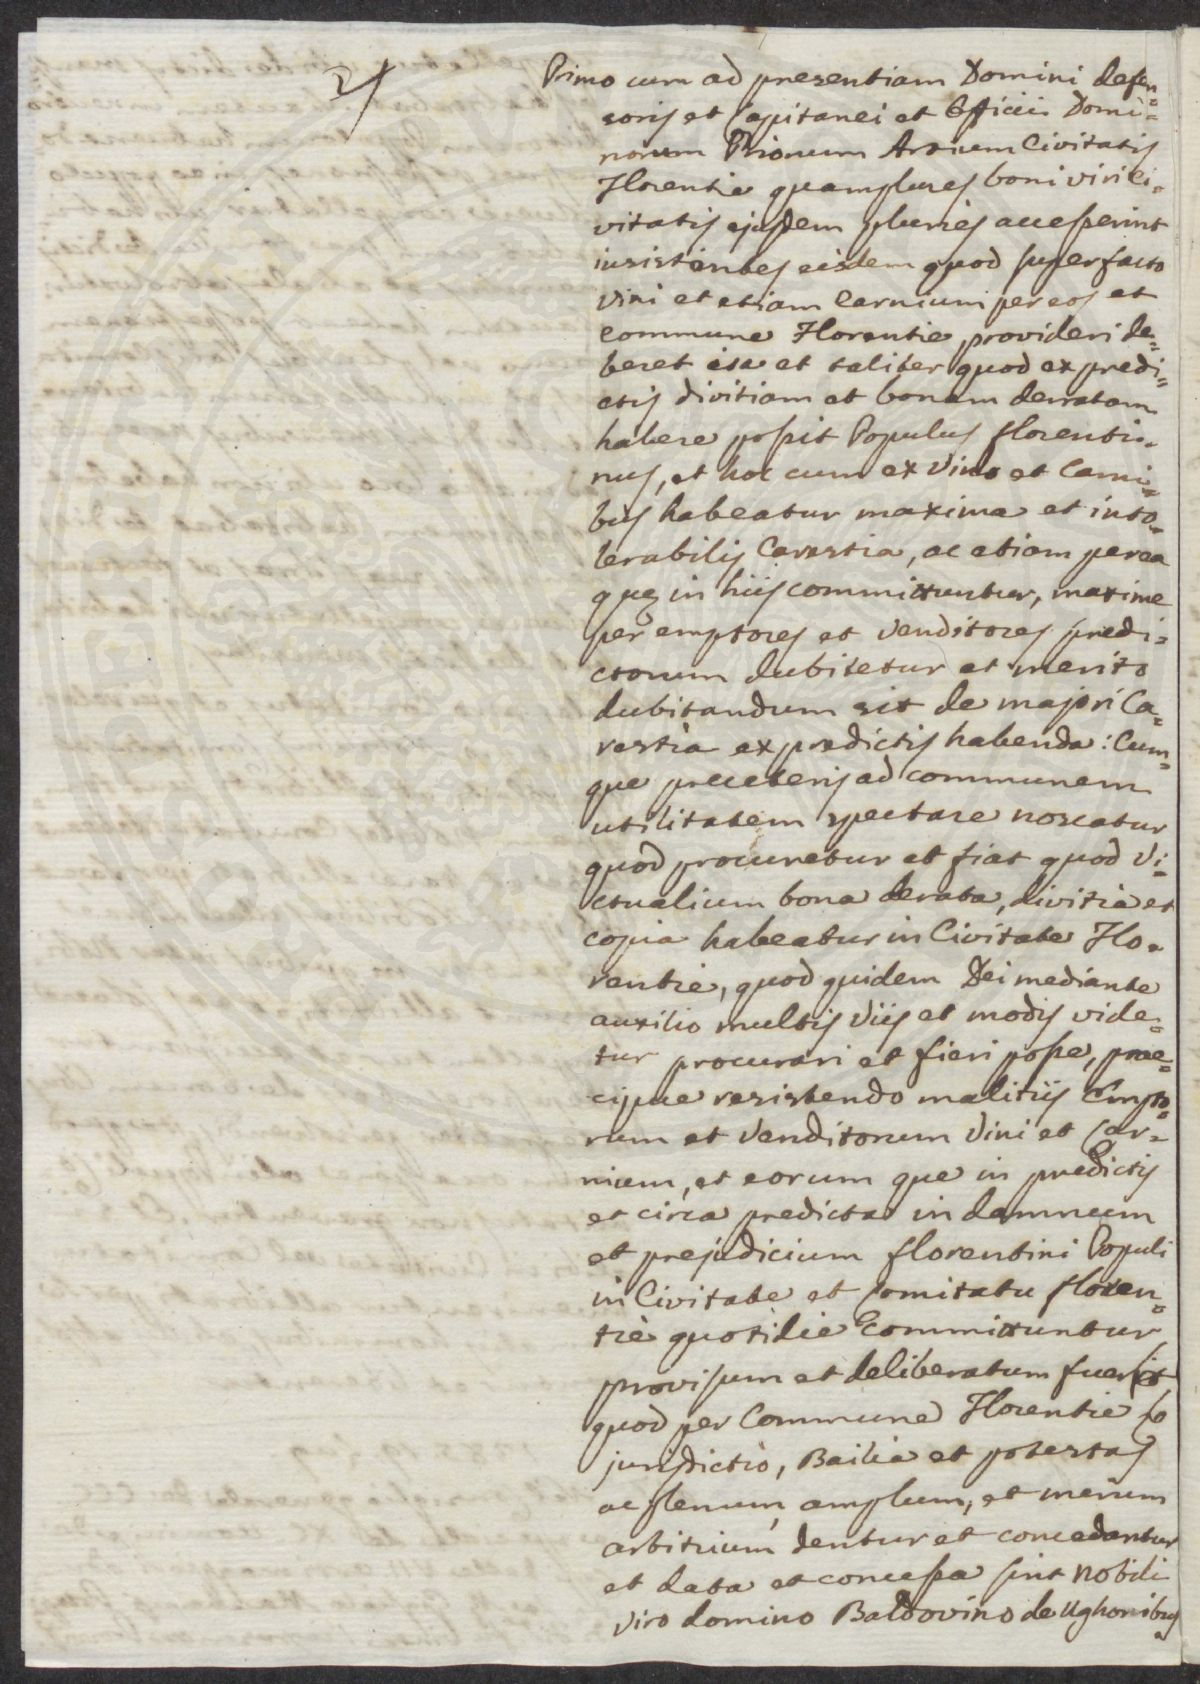 Primo cum ad presentiam Domini defen=
soris et Capitanei et Officii Domi=
norum Priorum Artium Civitatis
Florentie quamplures boni viri ci=
vitatis ejusdem pluries accesserint
insistentes eisdem quod super facto
vini et etiam Carnium per eos et
commune Florentie provideri de=
beret ita et taliter quod ex predi=
ctis divitiam et bonam derratam
habere possit Populus florenti=
nus, et hoc cum ex Vino et Carni=
bus habeatur maxima et into=
lerabilis Carestia, ac etiam per ea
que in hiis committuntur, maxime
per emptores et venditores predi=
ctorum dubitetur et merito
dubitandum sit de majori Ca=
restia ex predictis habenda: Cum=
que pre ceteris ad communem
utilitatem spectare noscatur
quod procuretur et fiat quod Vi=
ctualium bona derata, divitia et
copia habeatur in Civitate Flo=
rentie, quod quidem Dei mediante
auxilio multis viis et modis vide=
tur procurari et fieri posse, prae=
cipue resistendo malitiis Empto=
rum et Venditorum Vini et Car=
nium, et eorum que in predictis
et circa predicta in damnum
et prejudicium florentini Populi
in Civitate et Comitatu floren=
tie quotidie committuntur
provisum et deliberatum fuerit
quod per Commune Florentie
jurisdictio, Bailia et potestas
ac plenum, amplum, et merum
arbitrium dentur et concedantur
et data et concessa sint nobili
viro domino Baldovino de Ughonibus